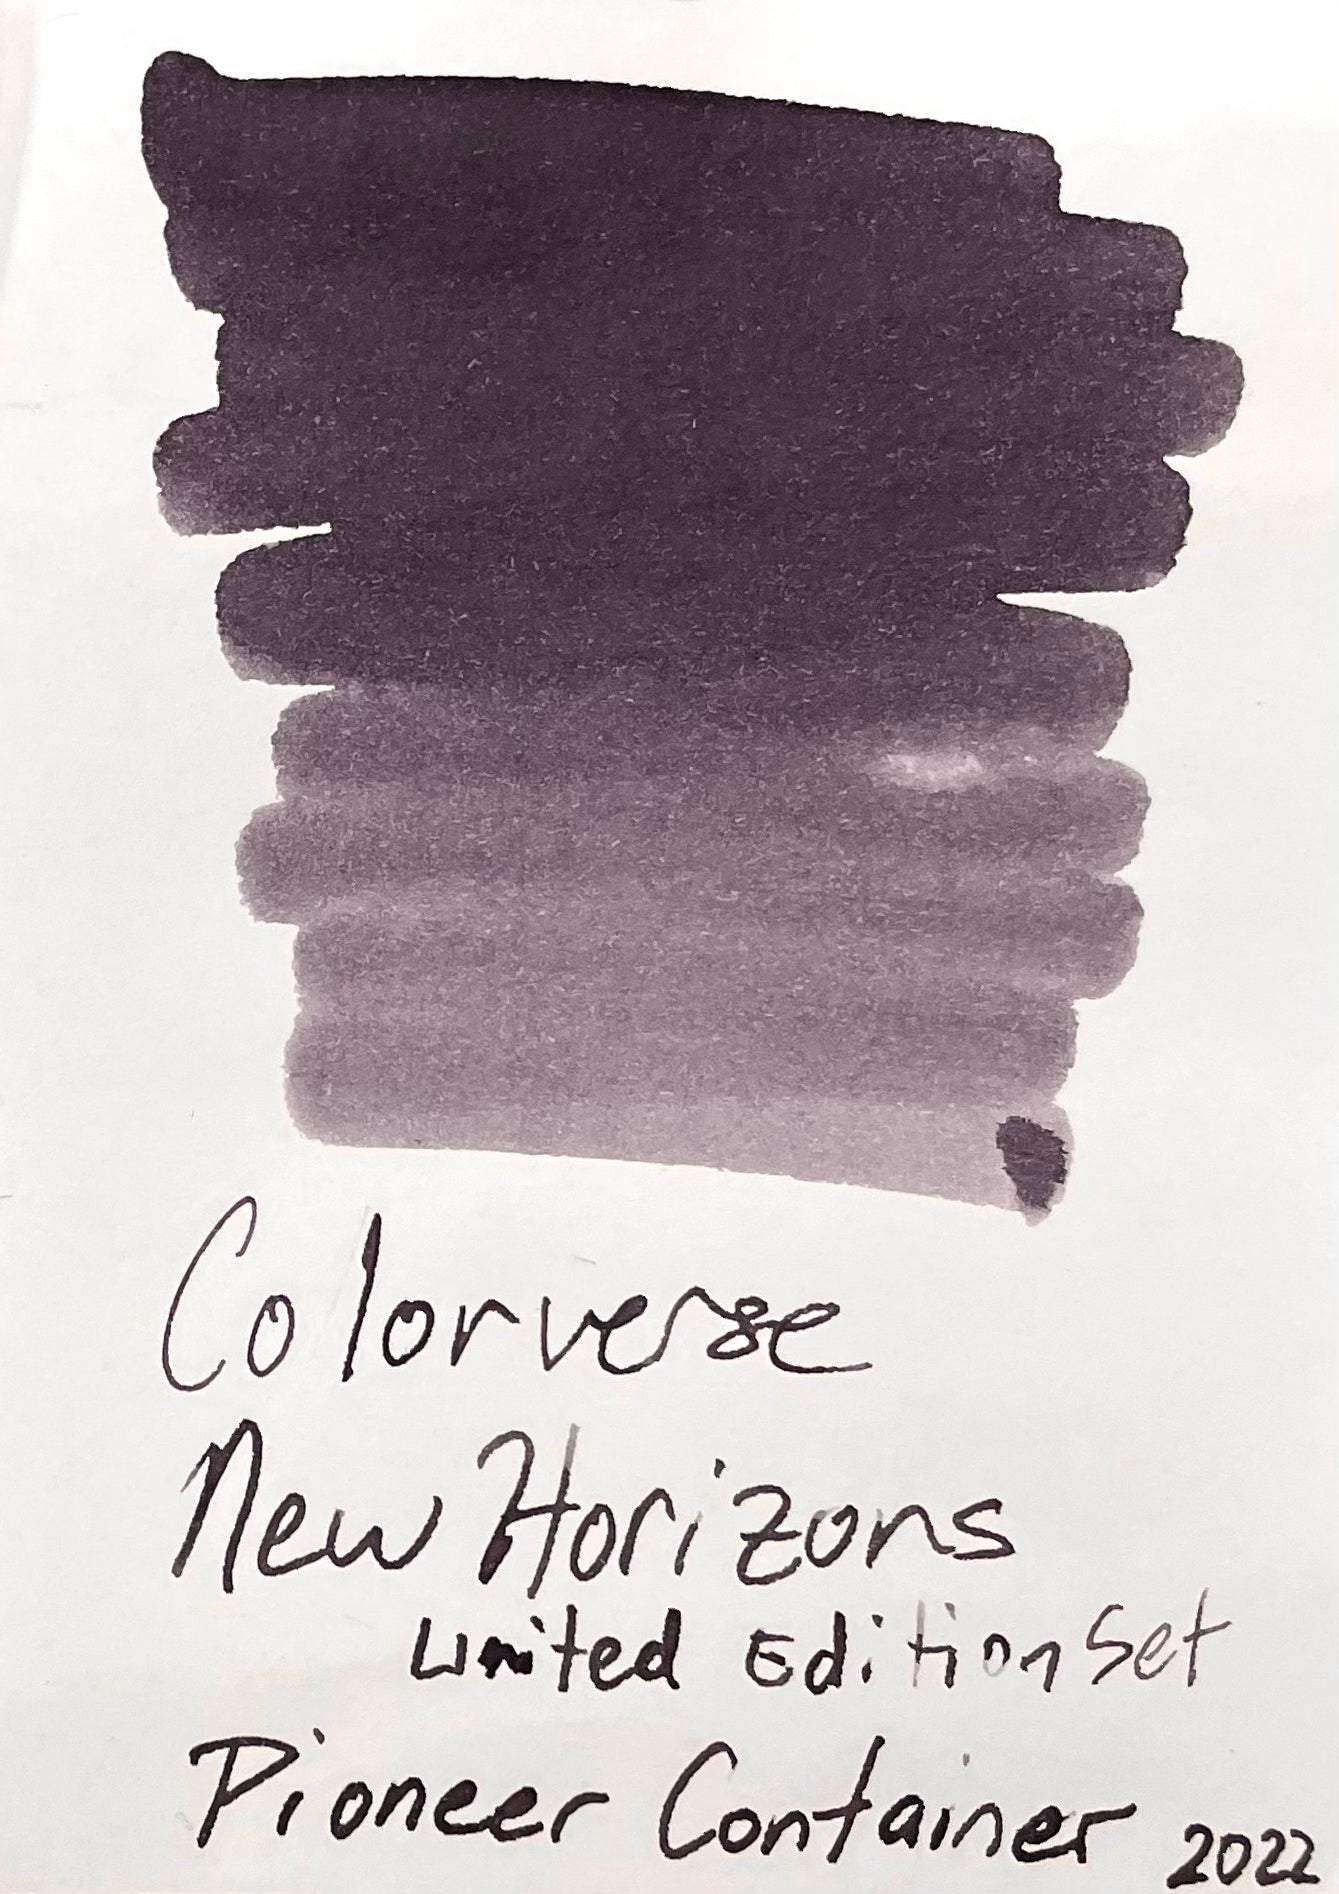 Colorverse
New Horizons
Limited Edition Set
Pioneer Container 2022